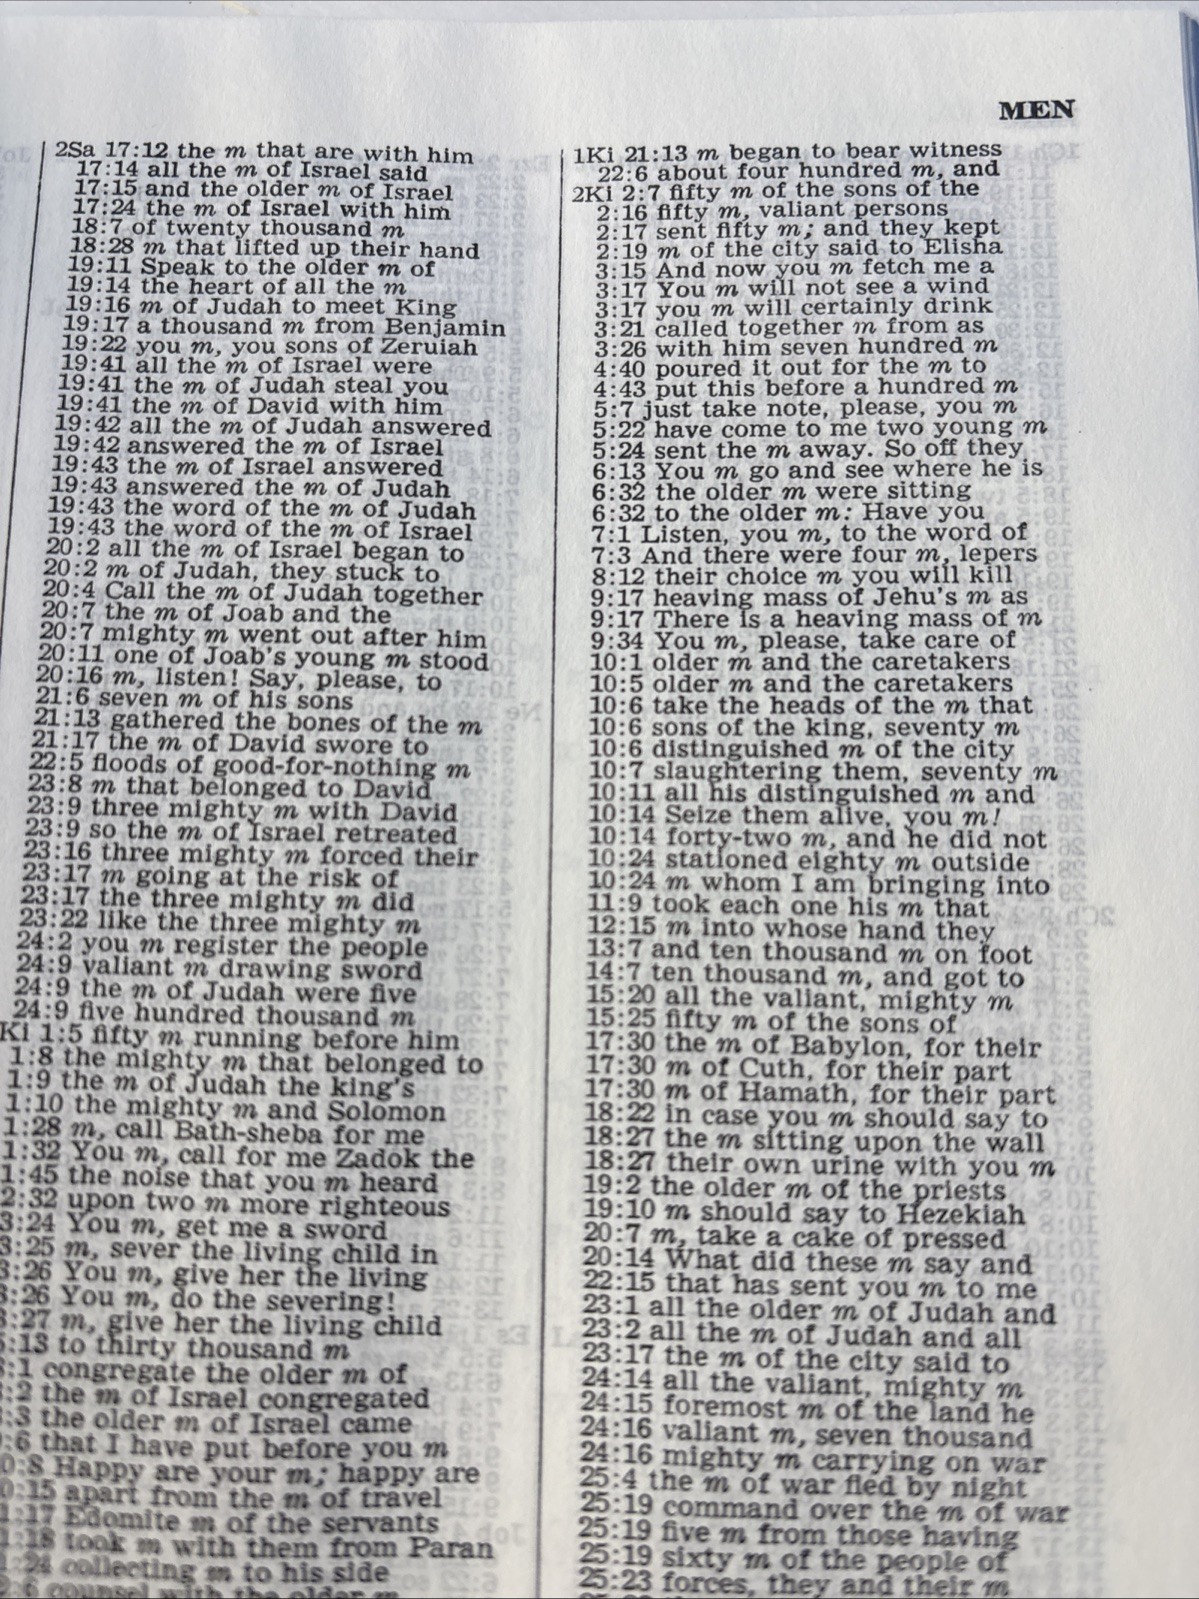 MEN
2Sa 17:12 the m that are with him
17:14 all the m of Israel said
17:15 and the older m of Israel
17:24 the m of Israel with him
18:7 of twenty thousand m
18:28 m that lifted up their hand
19:11 Speak to the older m of
19:14 the heart of all the m
19:16 m of Judah to meet King
19:17 a thousand m from Benjamin
19:22 you m, you sons of Zeruiah
19:41 all the m of Israel were
19:41 the m of Judah steal you
19:41 the m of David with him
19:42 all the m of Judah answered
19:42 answered the m of Israel
19:43 the m of Israel answered
19:43 answered the m of Judah
19:43 the word of the m of Judah
19:43 the word of the m of Israel
20:2 all the m of Israel began to
20:2 m of Judah, they stuck to
20:4 Call the m of Judah together
20:7 the m of Joab and the
20:7 mighty m went out after him
20:11 one of Joab's young m stood
20:16 m, listen! Say, please, to
21:6 seven m of his sons
21:13 gathered the bones of the m
21:17 the m of David swore to
22:5 floods of good-for-nothing m
23:8 m that belonged to David
23:9 three mighty m with David
23:9 so the m of Israel retreated
23:16 three mighty m forced their
23:17 m going at the risk of
23:17 the three mighty m did
23:22 like the three mighty m
24:2 you m register the people
24:9 valiant m drawing sword
24:9 the m of Judah were five
24:9 five hundred thousand m
Ki 1:5 fifty m running before him
1:8 the mighty m that belonged to
1:9 the m of Judah the king's
1:10 the mighty m and Solomon
1:28 m, call Bath-sheba for me
1:32 You m, call for me Zadok the
1:45 the noise that you m heard
2:32 upon two m more righteous
3:24 You m, get me a sword
3:25 m, sever the living child in
3:26 You m, give her the living
3:26 You m, do the severing!
3:27 m, give her the living child
:13 to thirty thousand m
:1 congregate the older m of
:2 the m of Israel congregated
:3 the older m of Israel came
:6 that I have put before you m
0:8 Happy are your m; happy are
0:15 apart from the m of travel
1:17 Edomite m of the servants
1:18 took m with them from Paran
:24 collecting m to his side
:6 counsel with the older m
1Ki 21:13 m began to bear witness
22:6 about four hundred m, and
2Ki 2:7 fifty m of the sons of the
2:16 fifty m, valiant persons
2:17 sent fifty m; and they kept
2:19 m of the city said to Elisha
3:15 And now you m fetch me a
3:17 You m will not see a wind
3:17 you m will certainly drink
3:21 called together m from as
3:26 with him seven hundred m
4:40 poured it out for the m to
4:43 put this before a hundred m
5:7 just take note, please, you m
5:22 have come to me two young m
5:24 sent the m away. So off they
6:13 You m go and see where he is
6:32 the older m were sitting
6:32 to the older m: Have you
7:1 Listen, you m, to the word of
7:3 And there were four m, lepers
8:12 their choice m you will kill
9:17 heaving mass of Jehu's m as
9:17 There is a heaving mass of m
9:34 You m, please, take care of
10:1 older m and the caretakers
10:5 older m and the caretakers
10:6 take the heads of the m that
10:6 sons of the king, seventy m
10:6 distinguished m of the city
10:7 slaughtering them, seventy m
10:11 all his distinguished m and
10:14 Seize them alive, you m!
10:14 forty-two m, and he did not
10:24 stationed eighty m outside
10:24 m whom I am bringing into
11:9 took each one his m that
12:15 m into whose hand they
13:7 and ten thousand m on foot
14:7 ten thousand m, and got to
15:20 all the valiant, mighty m
15:25 fifty m of the sons of
17:30 the m of Babylon, for their
17:30 m of Cuth, for their part
17:30 m of Hamath, for their part
18:22 in case you m should say to
18:27 the m sitting upon the wall
18:27 their own urine with you m
19:2 the older m of the priests
19:10 m should say to Hezekiah
20:7 m, take a cake of pressed
20:14 What did these m say and
22:15 that has sent you m to me
23:1 all the older m of Judah and
23:2 all the m of Judah and all
23:17 the m of the city said to
24:14 all the valiant, mighty m
24:15 foremost m of the land he
24:16 valiant m, seven thousand
24:16 mighty m carrying on war
25:4 the m of war fled by night
25:19 command over the m of war
25:19 five m from those having
25:19 sixty m of the people of
25:23 forces, they and their m